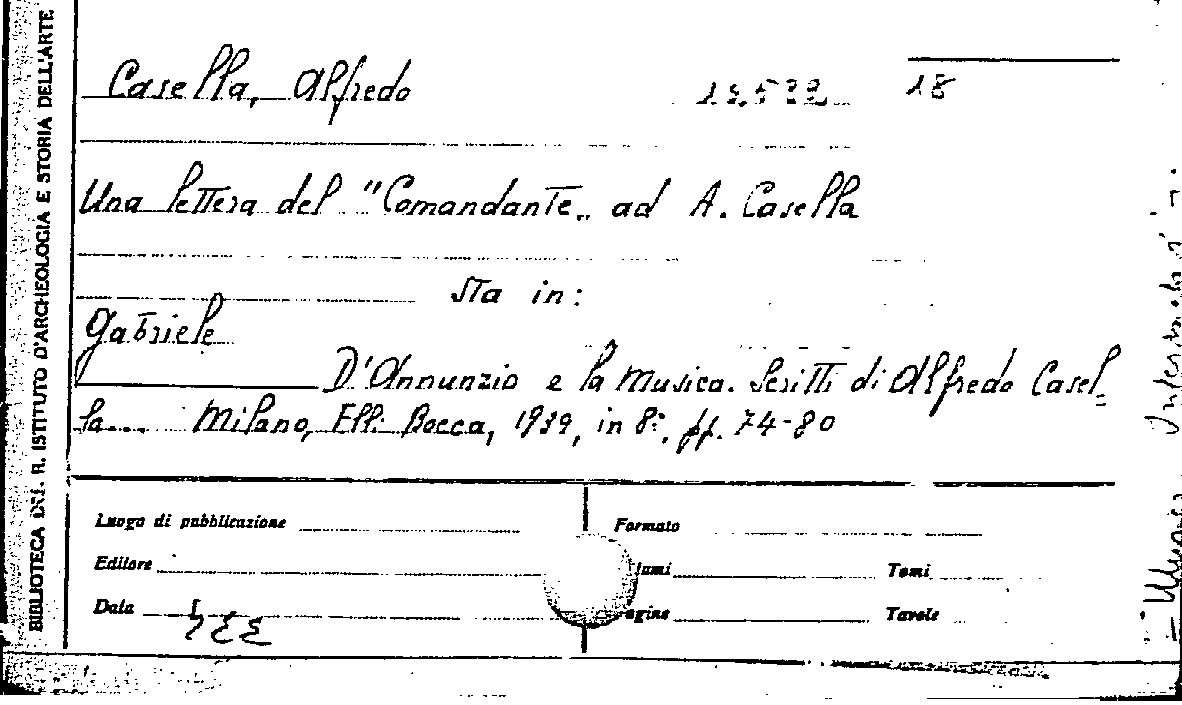 BIBLIOTECA DEL R. ISTITUTO D'ARCHEOLOGIA E STORIA DELL'ARTE
Casella, Alfredo
18
Una lettera del "Comandante„ ad A. Casella
Sta in:
Gabriele
D'Annunzio e la Musica. Scritti di Alfredo Casel=
la... Milano, Flli. Bocca, 1939, in 8°, pp. 74-80
Luogo di pubblicazione
Formato
Editore
lumi
Tomi
Data
agine
Tavole